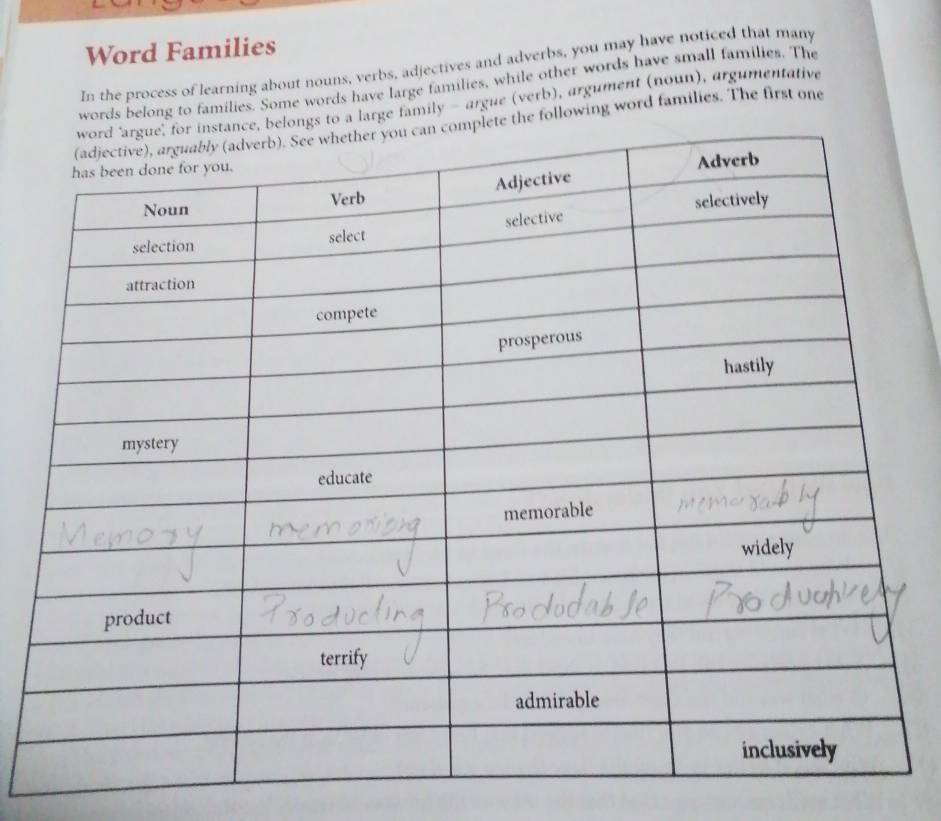 Word Families
In the process of learning about nouns, verbs, adjectives and adverbs, you may have noticed that many
words belong to families. Some words have large families, while other words have small families. The
word 'argue', for instance, belongs to a large family – argue (verb), argument (noun), argumentative
(adjective), arguably (adverb). See whether you can complete the following word families. The first one
has been done for you.
Noun Verb Adjective Adverb
selection select selective selectively
attraction
compete
prosperous
hastily
mystery
educate
Memory memorable memorably
widely
product Producting Productively
terrify
admirable
inclusively